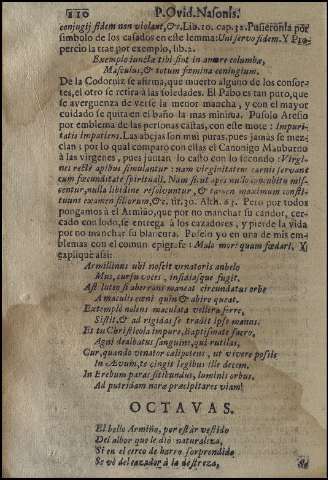 210 P. Ovid. Nasonis.
conjugij fidem non violant, &c. Lib. 10. cap. 32. Pusieronla por
simbolo de los casados en este lemma: Uni servo fidem. Y Pro-
percio la trae por exemplo, lib. 2.
Exemplo iunctæ tibi sint in amore columbæ,
Masculus, & totum fœmina coniugium.
De la Codorniz se afirma, que muerto alguno de los consor-
tes, el otro se retira à las soledades. El Pabo es tan puro, que
se averguenza de verse la menor mancha, y con el mayor
cuidado se quita en el baño la mas minima. Pusolo Aresio
por emblema de las personas castas, con este mote: Impuri-
tatis impatiens. Las abejas son mui puras, pues jamàs se mez-
clan; por lo qual comparò con ellas el Canonigo Mauburno
à las virgenes, pues juntan lo casto con lo fecundo: Virgi-
nes recte apibus simulantur: nam virginitatem carnis servant
cum fœcunditate spirituali. Nam sicut apes nullo concubitu mis-
centur, nulla libidine resolvuntur, & tamen maximum consti-
tuunt examen filiorum, &c. tit. 30. Alph. 83. Pero por todos
pongamos à el Armiño, que por no manchar su candor, cer-
cado con lodo, se entrega à los cazadores, y pierde la vida
por no manchar su blancura. Puselo yo en una de mis em-
blemas con el comun epigrafe: Malo mori quam fœdari. Y
expliquè assi:
Armillinus ubi noscit venatoris anhelo
Mus, cursu voces, insidiasque fugit.
Ast lutea si aberrans maneat circundatus orbe
A maculis cœni quin & abire queat.
Extemplò nolens maculata vellera ferre,
Sistit, & ad rigidas se tradit ipse manus.
Et tu Christicola impure, Baptismate suavo,
Agni dealbatus sanguine, qui rutilas,
Cur, quando venator calipotens, ut vivere possis
In Ævum, te cingit legibus ille decem.
In Erebum paras sitibundus, luminis orbus,
Ad putridam noxæ præcipitares viam!
OCTAVAS.
El bello Armiño, por estàr vestido
Del albor que le diò naturaleza,
Si en el cerco de barro sorprendido
Se vè del cazador à la destreza,